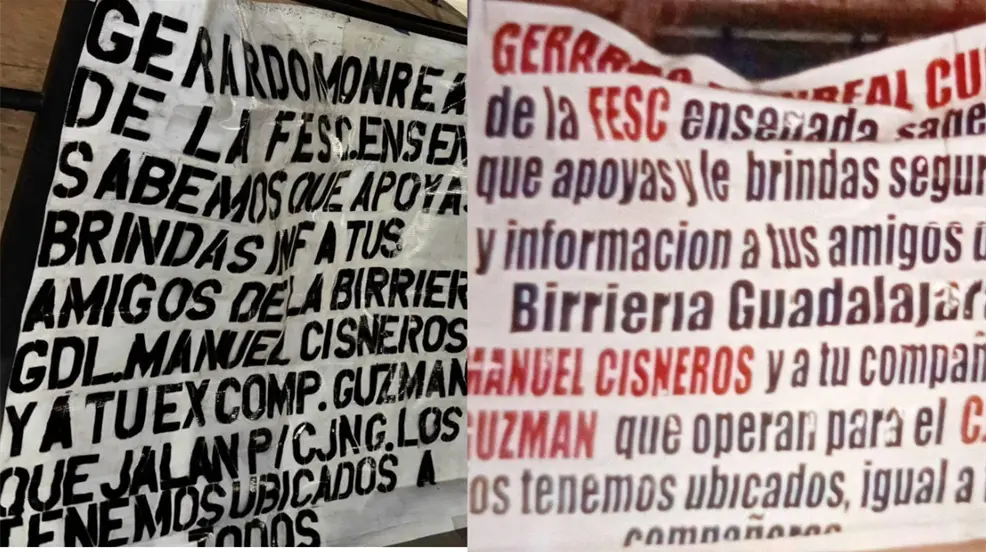 GERARDO MONREA
DE LA FESC.ENSEN
SABEMOS QUE APOYAS
BRINDAS INF A TUS
AMIGOS DE LA BIRRIER
GDL.MANUEL CISNEROS
Y A TU EX COMP. GUZMAN
QUE JALAN P/ CJNG. LOS
TENEMOS UBICADOS A
TODOS
GERARDO MONREAL CU
de la FESC ensenada sabe
que apoyas y le brindas segur
y informacion a tus amigos d
Birrieria Guadalajara
MANUEL CISNEROS y a tu compañ
GUZMAN que operan para el C
os tenemos ubicados, igual a
compañeros